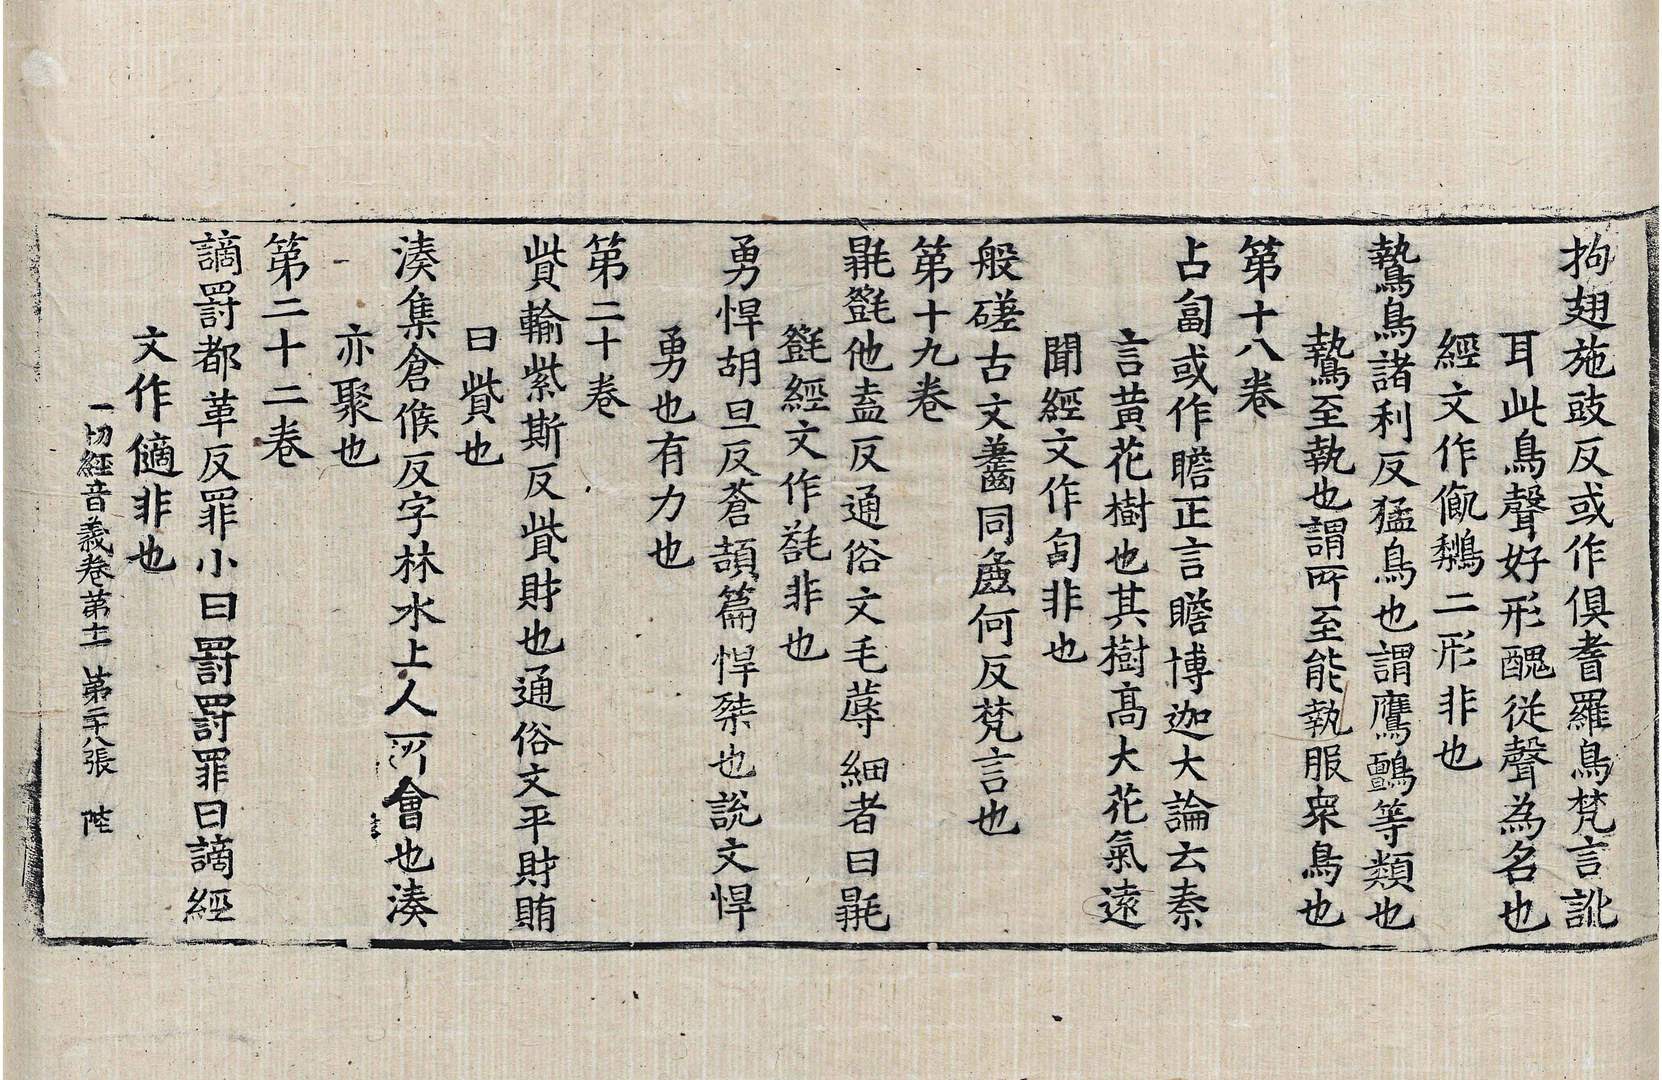 拘翅施豉反或作俱耆羅鳥梵言訛
耳此鳥聲好形醜從聲為名也
經文作𪃿二形非也
鷙鳥諸利反猛鳥也謂鷹鸇等類也
鷙至執也謂所至能執服衆鳥也
第十八卷
占匐或作瞻正言瞻博迦大論云秦
言黄花樹也其樹髙大花氣遠
聞經文作匐非也
般磋古文齹同麁何反梵言也
第十九卷
毾㲪他盍反通俗文毛蓐細者曰毾
㲪經文作非也
勇悍胡旦反蒼頡篇悍桀也說文悍
勇也有力也
第二十卷
貲輸紫斯反貲財也通俗文平財賄
曰貲也
湊集倉候反字林水上人所會也湊
亦聚也
第二十二卷
謫罰都革反罪小曰罰罰罪曰謫經
文作𠏰非也
一切經音義卷第十一 第二十八張 陛